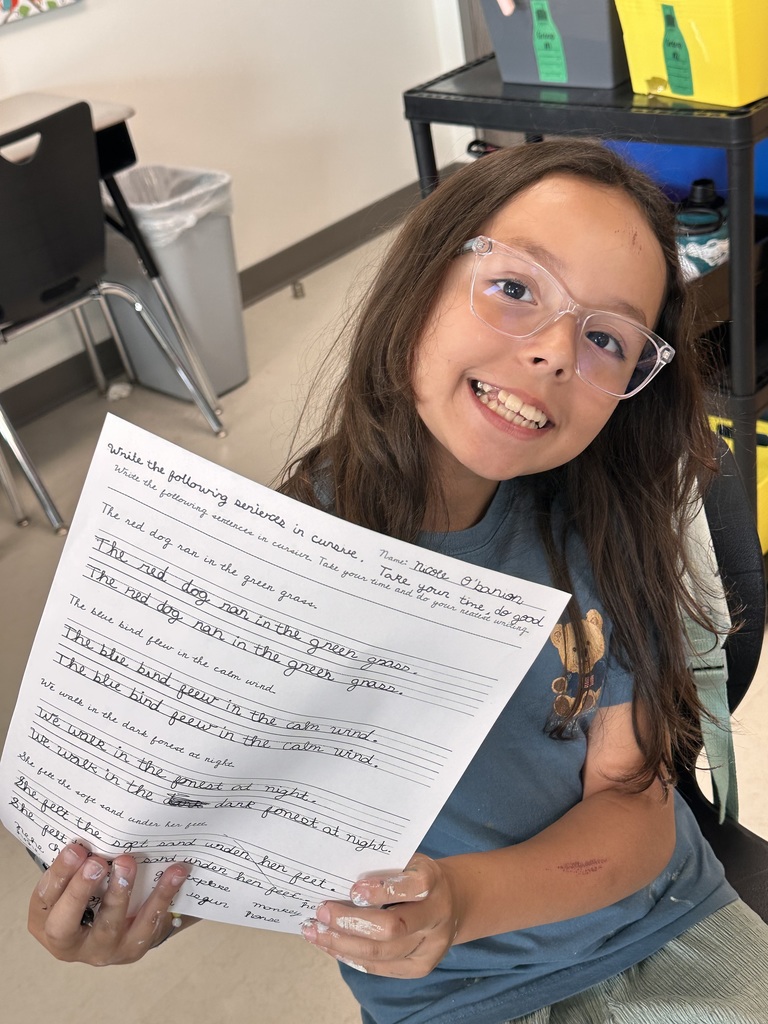 Write the following sentences in cursive. Take your time, do good
Name: Nicole O'banion
Write the following sentences in cursive. Take your time and do your neatest writing.
The red dog ran in the green grass.
The red dog ran in the green grass.
The red dog ran in the green grass.
The blue bird flew in the calm wind.
The blue bird feew in the calm wind.
The blue bird feew in the calm wind.
We walk in the dark forest at night
We walk in the forest at night.
We walk in the dark forest at night.
She felt the soft sand under her feet.
She felt the soft sand under her feet.
She felt sand under her feet.
explore
monkey
horse